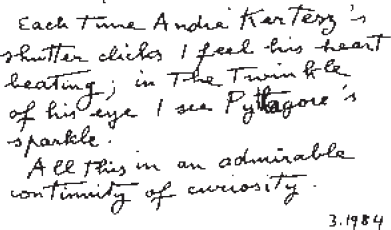 Each time André Kertesz's
shutter clicks I feel his heart
beating; in The Twinkle
of his eye I see Pythagore's
sparkle.
All this in an admirable
continuity of curiosity.
3.1984